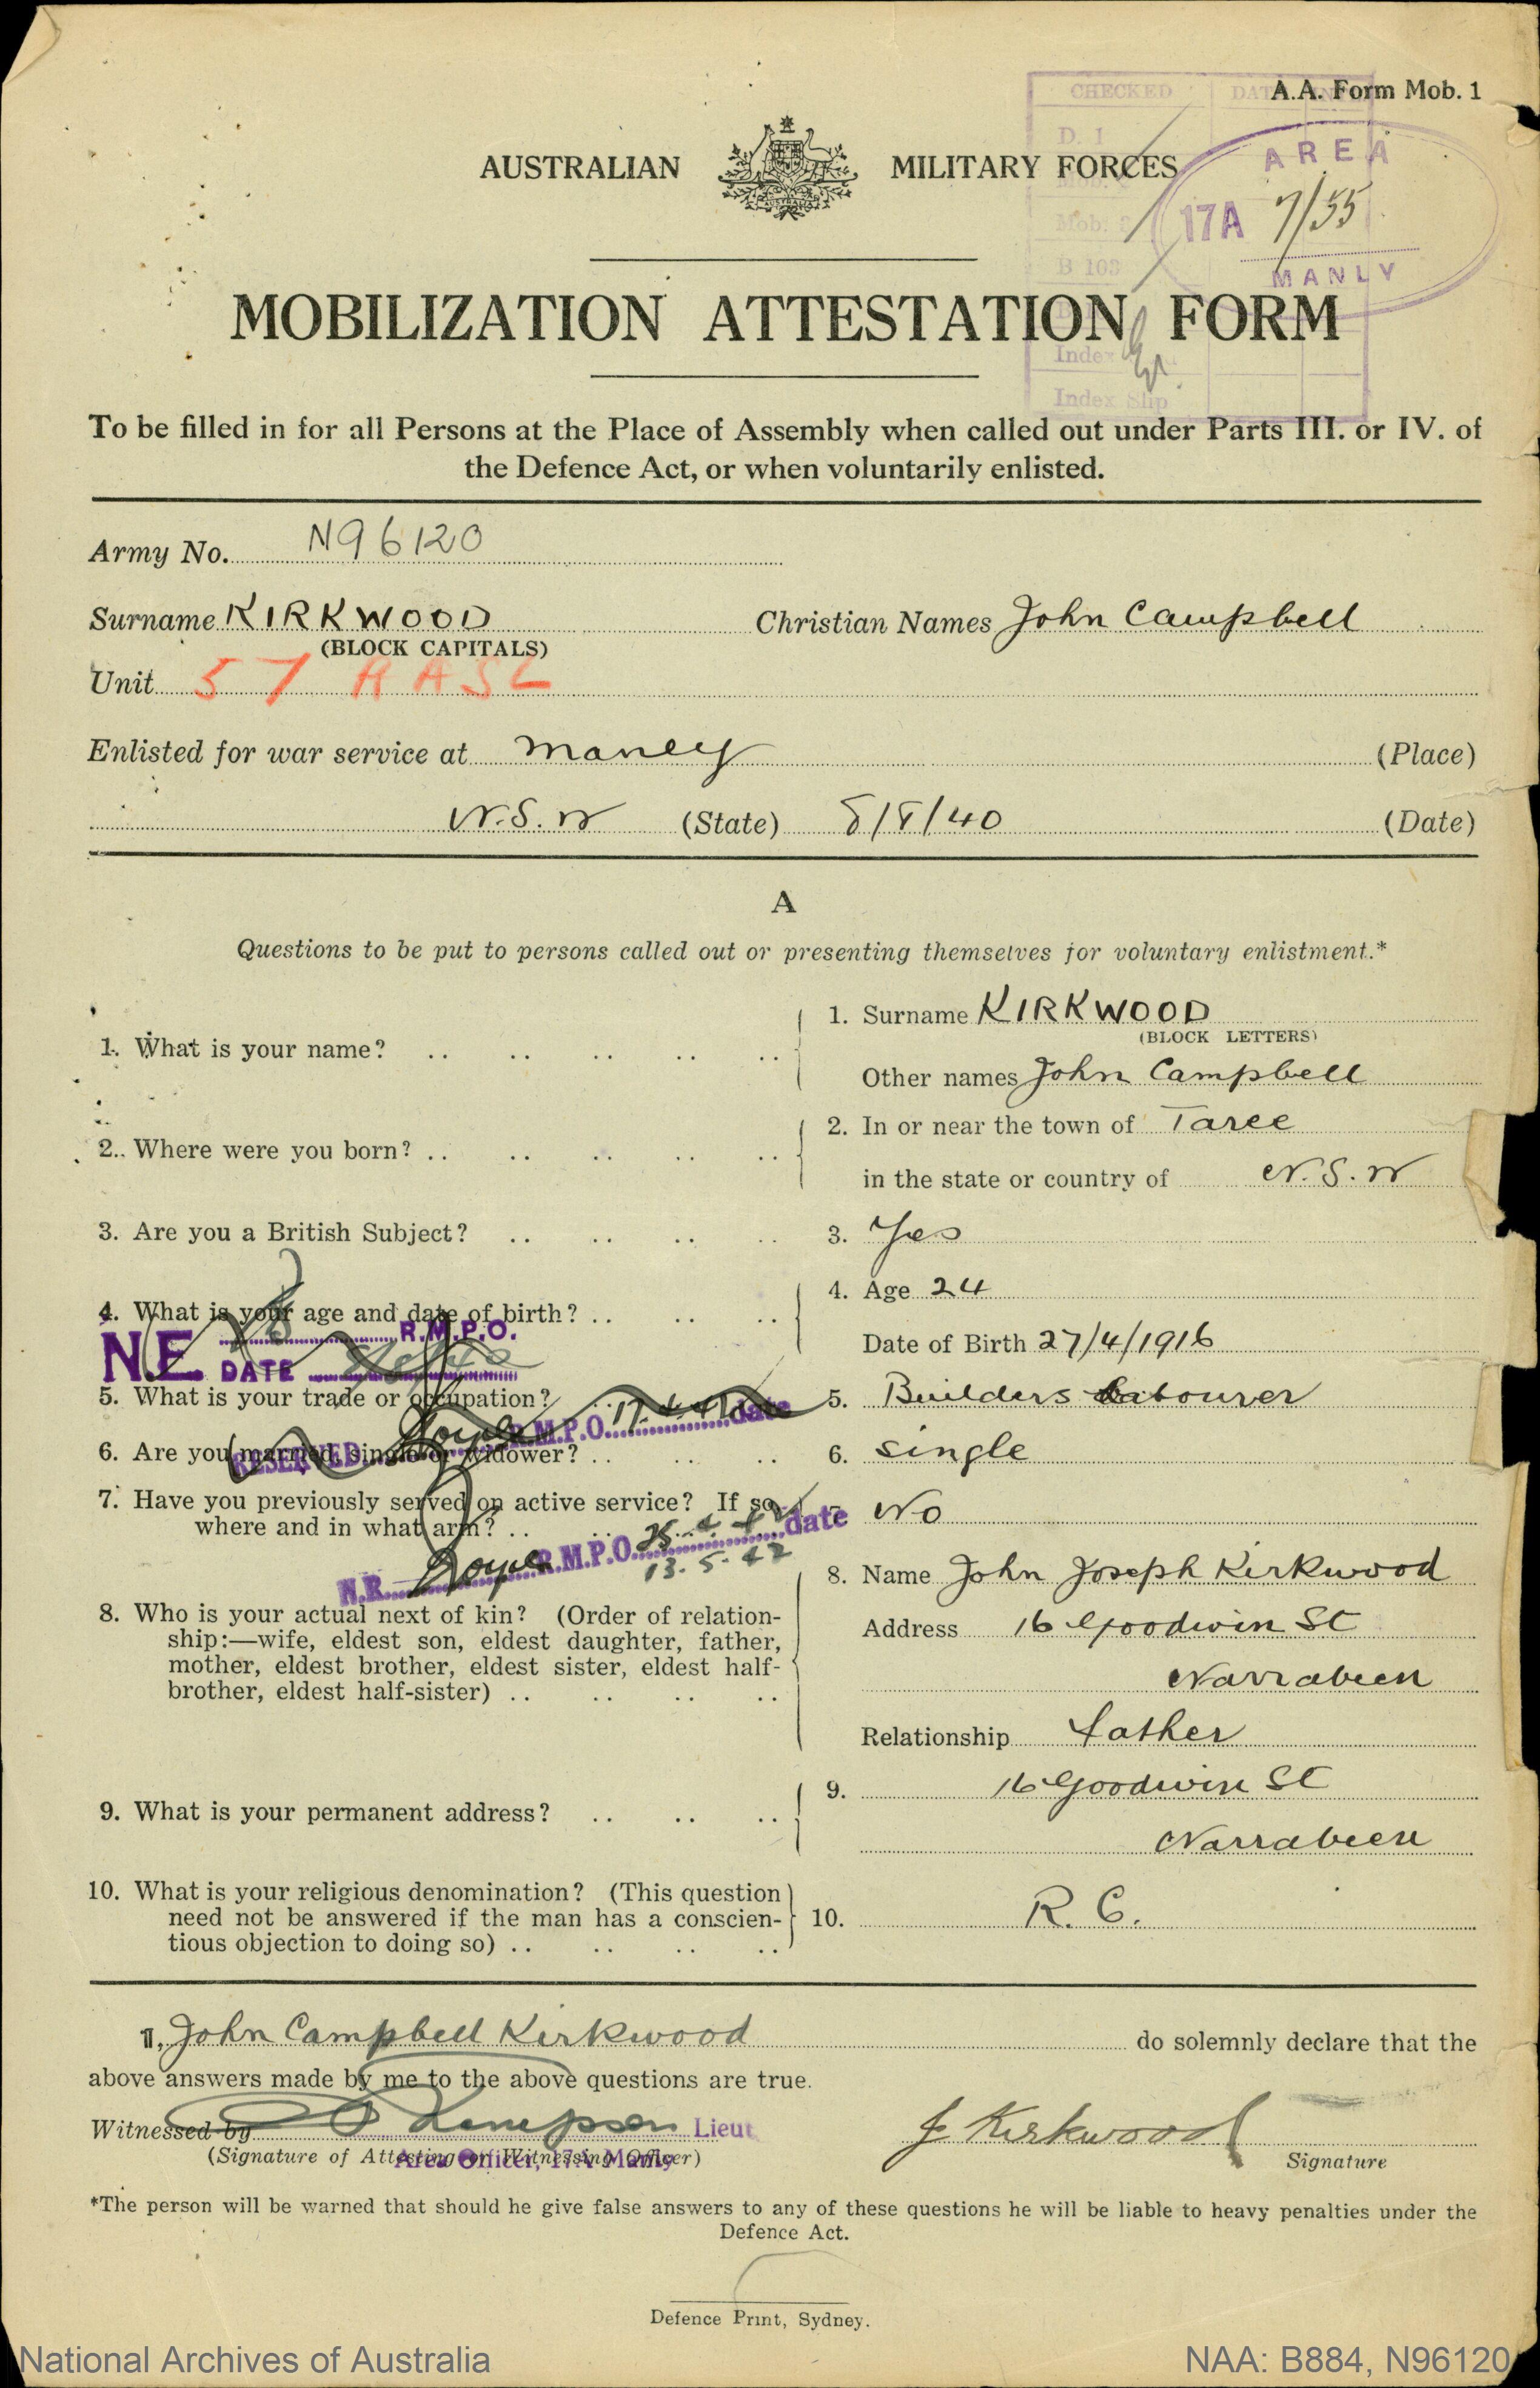 A.A. Form Mob. 1
CHECKED
D. 1
AUSTRALIAN MILITARY FORCES
AREA
17A 7/55
MANLY
Mob.
B 103
Index
Index Slip
MOBILIZATION ATTESTATION FORM
To be filled in for all Persons at the Place of Assembly when called out under Parts III. or IV. of
the Defence Act, or when voluntarily enlisted.
Army No. N96120
Surname KIRKWOOD Christian Names John Campbell
(BLOCK CAPITALS)
Unit 57 AASL
Enlisted for war service at Manly (Place)
N.S.W (State) 8/8/40 (Date)
A
Questions to be put to persons called out or presenting themselves for voluntary enlistment.*
1. What is your name? .. .. .. .. ..
1. Surname KIRKWOOD
(BLOCK LETTERS)
Other names John Campbell
2. Where were you born? .. .. .. .. ..
2. In or near the town of Taree
in the state or country of N.S.W
3. Are you a British Subject? .. .. .. ..
3. Yes
4. What is your age and date of birth? .. .. ..
4. Age 24
Date of Birth 27/4/1916
N.E. R.M.P.O.
DATE
5. What is your trade or occupation? .. .. ..
5. Builders Labourer
RESERVED R.M.P.O. date
6. Are you married, single or widower? .. .. ..
6. single
7. Have you previously served on active service? If so,
where and in what arm? .. ..
No
N.R. R.M.P.O. date
13.5.42
8. Who is your actual next of kin? (Order of relation-
ship:—wife, eldest son, eldest daughter, father,
mother, eldest brother, eldest sister, eldest half-
brother, eldest half-sister) .. .. .. ..
8. Name John Joseph Kirkwood
Address 16 Goodwin St
Narrabeen
Relationship father
9. What is your permanent address? .. .. ..
9. 16 Goodwin St
Narrabeen
10. What is your religious denomination? (This question
need not be answered if the man has a conscien-
tious objection to doing so) .. .. .. ..
10. R. C.
I, John Campbell Kirkwood do solemnly declare that the
above answers made by me to the above questions are true.
Witnessed by Lieut
J Kirkwood
(Signature of Attesting or Witnessing Officer)
Area Officer, 17A Manly
Signature
*The person will be warned that should he give false answers to any of these questions he will be liable to heavy penalties under the
Defence Act.
Defence Print, Sydney.
National Archives of Australia NAA: B884, N96120